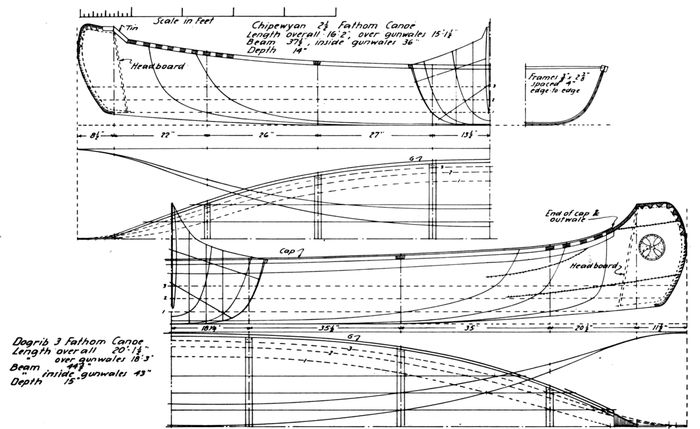 Scale in Feet
Chipewyan 2½ Fathom Canoe
Length overall 16'2", over gunwales 15'1½"
Beam 37½", inside gunwales 36"
Depth 14"
Tin
Headboard
Frames
spaced 4"
edge to edge
3
2
1
8½" 22" 26" 27" 13½"
G
3
2
1
End of cap &
outwale
Cap
Headboard
3
2
1
35½" 35" 20½"
Dogrib 3 Fathom Canoe
Length overall 20'1½"
" over gunwales 18'3"
Beam
" inside gunwales 43"
Depth 15"
G
3
2
1